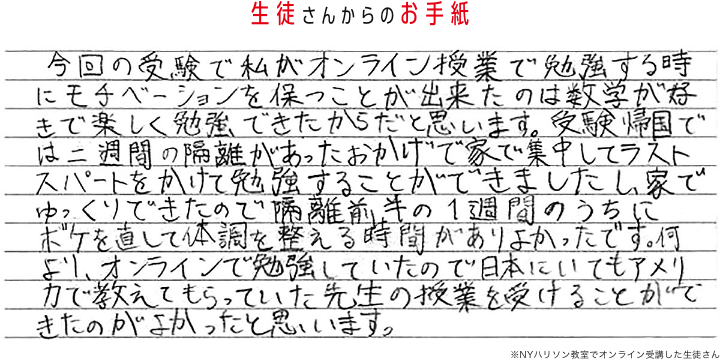 生徒さんからのお手紙
今回の受験で私がオンライン授業で勉強する時
にモチベーションを保つことが出来たのは数学が好
きで楽しく勉強できたからだと思います。受験帰国で
は二週間の隔離があったおかげで家で集中してラスト
スパートをかけて勉強することができましたし、家で
ゆっくりできたので隔離前半の1週間のうちに
ボケを直して体調を整える時間がありよかったです。何
より、オンラインで勉強していたので日本にいてもアメリ
カで教えてもらっていた先生の授業を受けることがで
きたのがよかったと思いいます。
※NYハリソン教室でオンライン受講した生徒さん